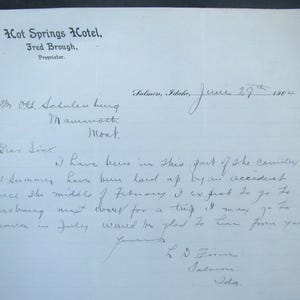 Hot Springs Hotel,
Fred Brough,
Proprietor.
Salmon, Idaho, June 29th 1904
Mr Ott Schulenburg
Mammoth
Mont.
Dear Sir:
I have been in this part of the country
Summer have been laid up by an accident
the middle of February I expect to go to
next week for a trip I may go to
in July would be glad to hear from you
Yours
L D
Salmon
Ida.